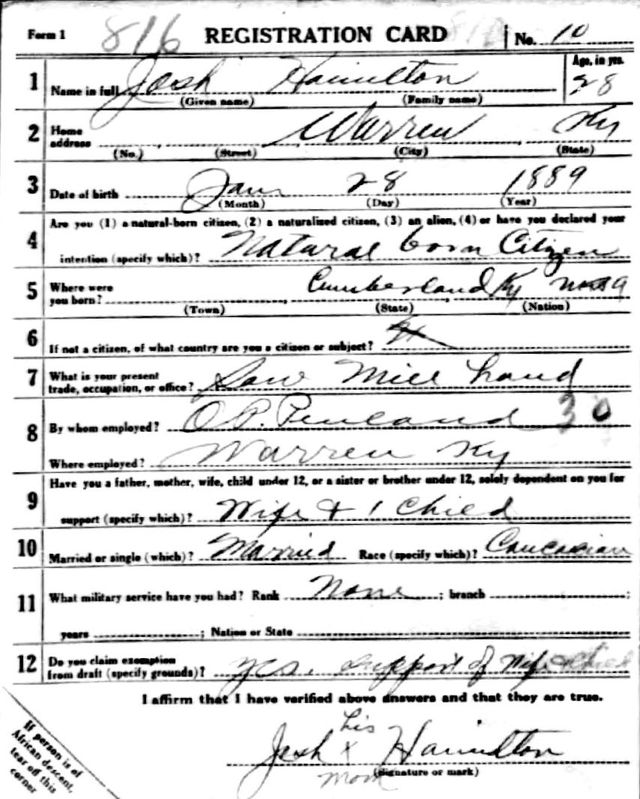 Form 1 816 REGISTRATION CARD No. 10
1 Name in full Josh Hamilton Age, in yrs. 28
(Given name) (Family name)
2 Home address Warren Ky
(No.) (Street) (City) (State)
3 Date of birth Jan 28 1889
(Month) (Day) (Year)
4 Are you (1) a natural-born citizen, (2) a naturalized citizen, (3) an alien, (4) or have you declared your
intention (specify which)? Natural born Citizen
5 Where were you born? Cumberland Ky
(Town) (State) (Nation)
6 If not a citizen, of what country are you a citizen or subject?
7 What is your present trade, occupation, or office? Saw Mill hand
8 By whom employed? O.P. Penland 30
Where employed? Warren Ky
9 Have you a father, mother, wife, child under 12, or a sister or brother under 12, solely dependent on you for
support (specify which)? Wife & 1 Child
10 Married or single (which)? Married Race (specify which)? Caucasian
11 What military service have you had? Rank None ; branch ;
years ; Nation or State
12 Do you claim exemption from draft (specify grounds)? Yes. Support of Wife & Child
I affirm that I have verified above answers and that they are true.
his
Josh x Hamilton
mark (Signature or mark)
If person is of
African descent,
tear off this
corner